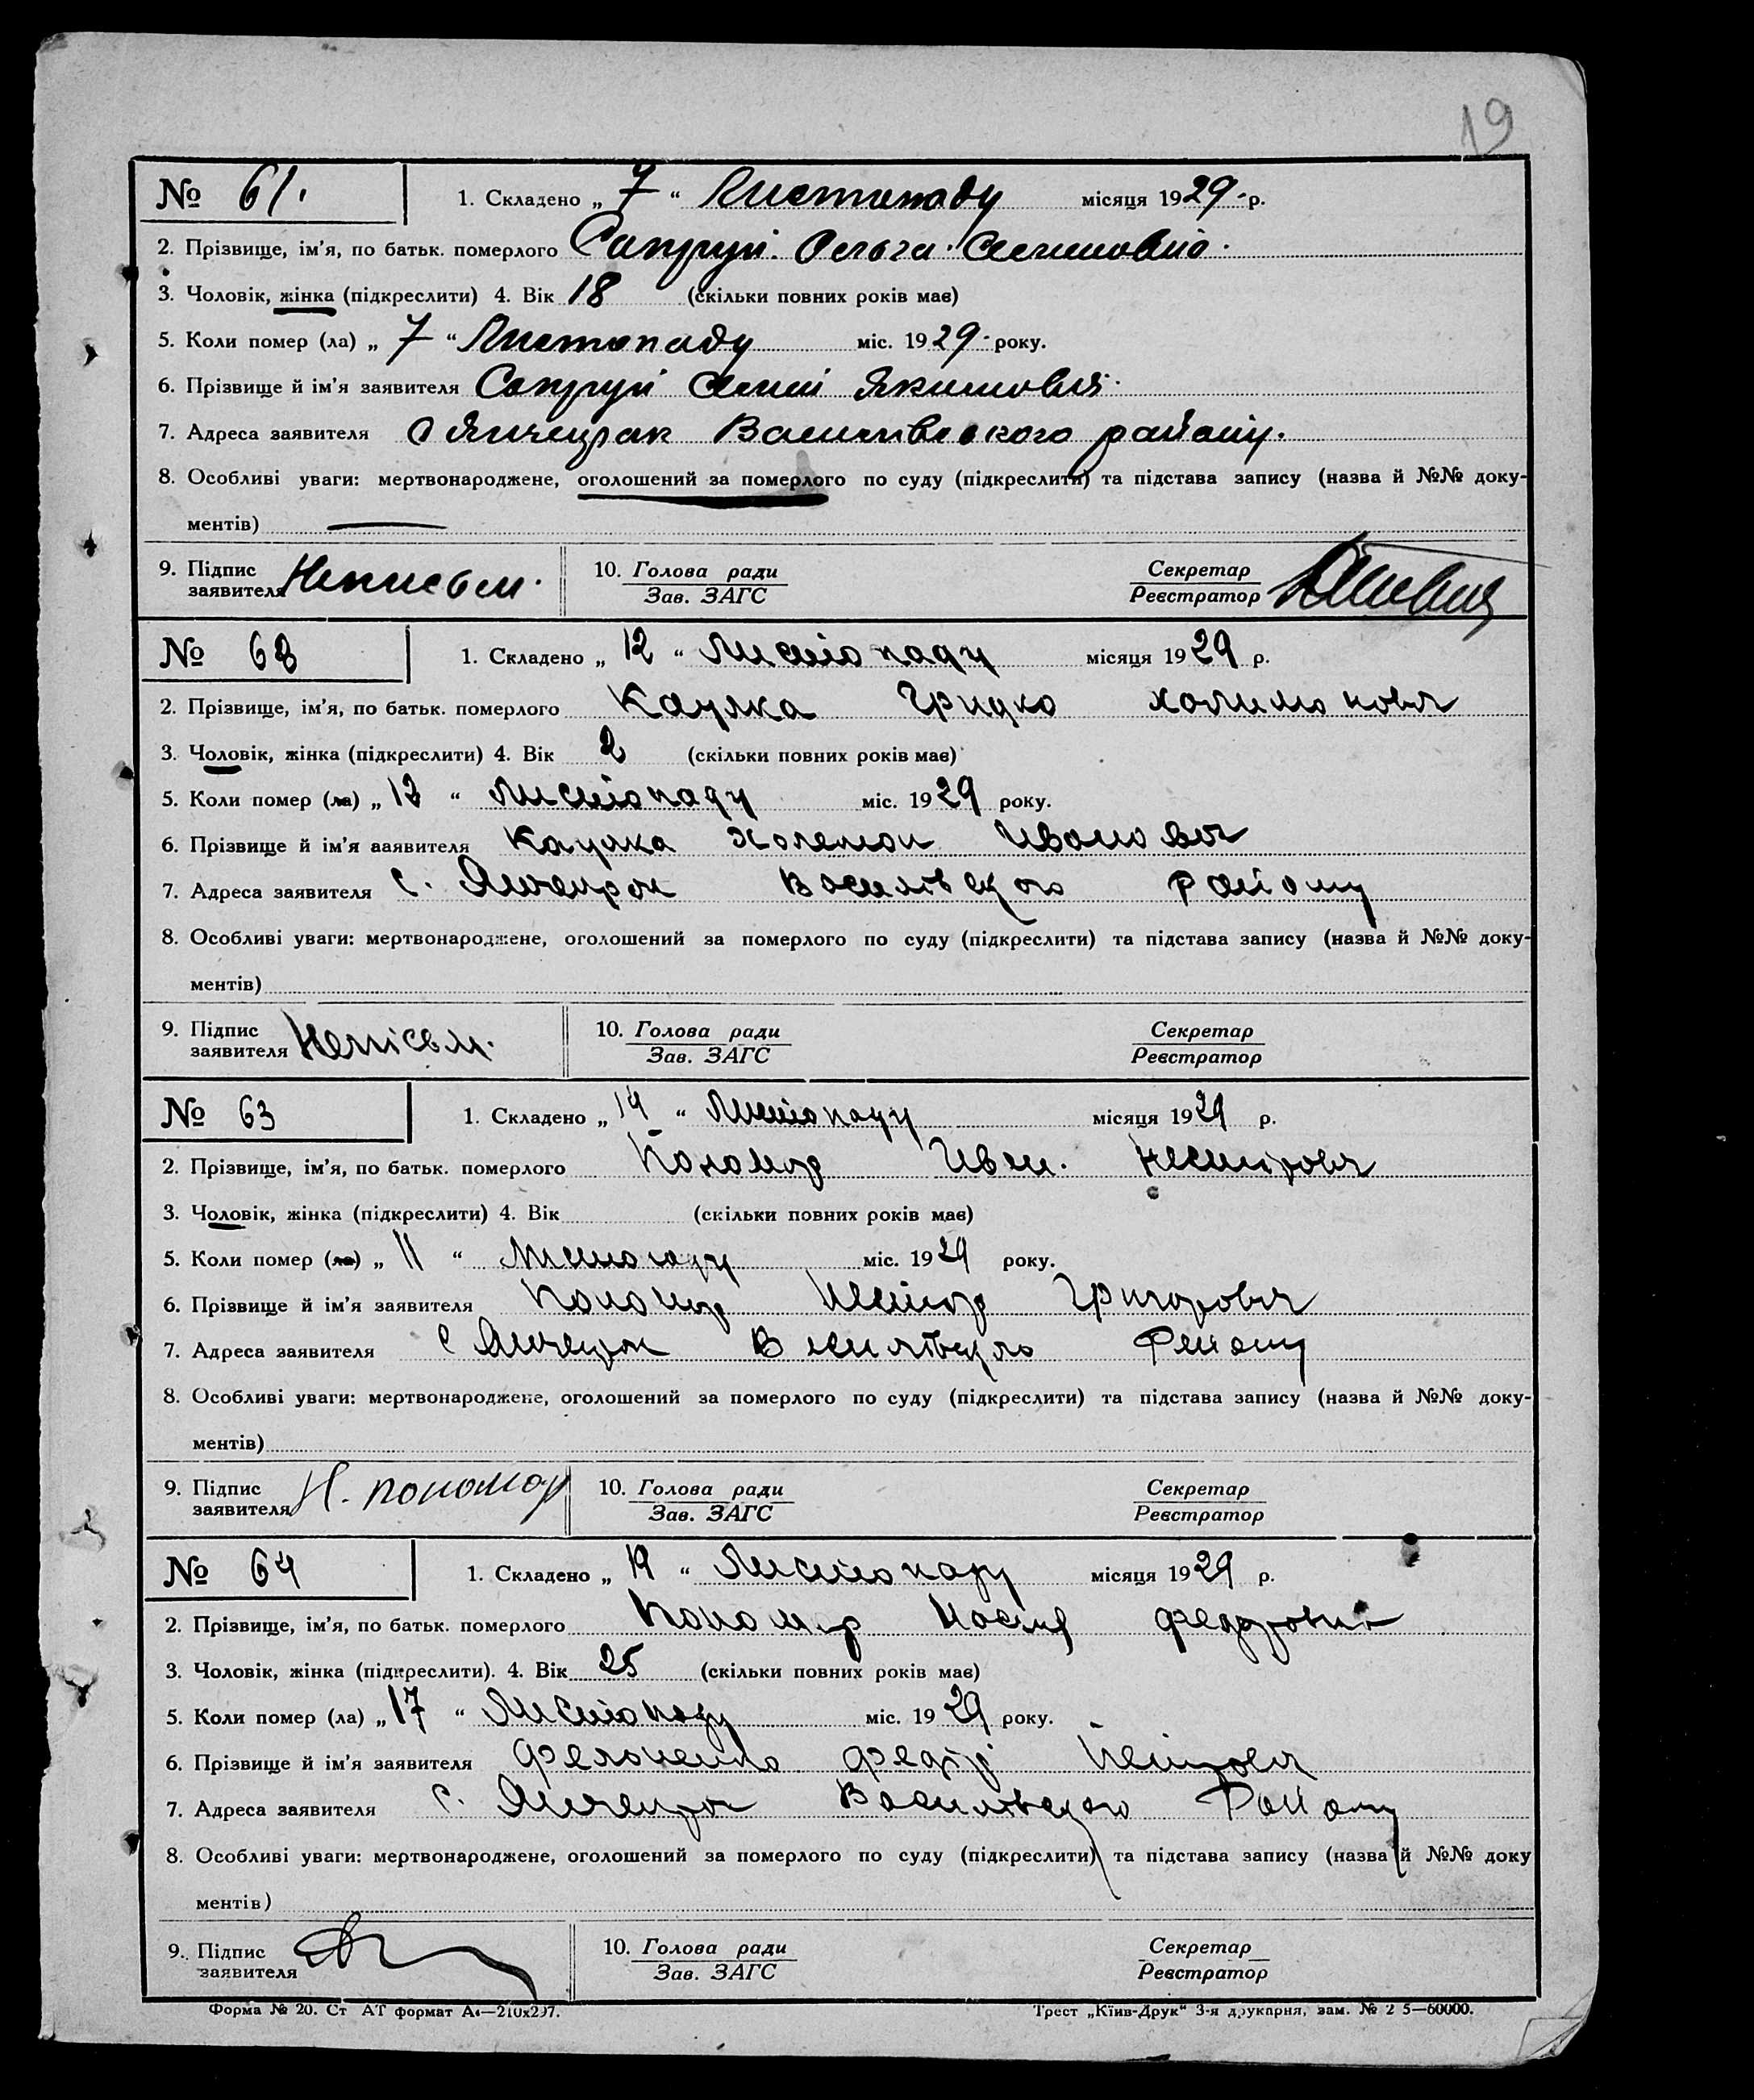 19
№ 61. 1. Складено „ 7 “ Листопаду місяця 1929 р.
2. Прізвище, ім’я, по батьк. померлого Ольга
3. Чоловік, жінка (підкреслити) 4. Вік 18 (скільки повних років має)
5. Коли помер (ла) „ 7 “ Листопаду міс. 1929 року.
6. Прізвище й ім’я заявителя Якимович
7. Адреса заявителя с Янчекрак Василівського району.
8. Особливі уваги: мертвонароджене, оголошений за померлого по суду (підкреслити) та підстава запису (назва й №№ доку-
ментів)
9. Підпис заявителя Неписьм. 10. Голова ради Зав. ЗАГС Секретар Реєстратор
№ 62 1. Складено „ 12 “ Листопаду місяця 1929 р.
2. Прізвище, ім’я, по батьк. померлого Грицко
3. Чоловік, жінка (підкреслити) 4. Вік 2 (скільки повних років має)
5. Коли помер (ла) „ 12 “ Листопаду міс. 1929 року.
6. Прізвище й ім’я заявителя Иванович
7. Адреса заявителя с. Янчекрак Василівского Району
8. Особливі уваги: мертвонароджене, оголошений за померлого по суду (підкреслити) та підстава запису (назва й №№ доку-
ментів)
9. Підпис заявителя Непісьм. 10. Голова ради Зав. ЗАГС Секретар Реєстратор
№ 63 1. Складено „ 14 “ Листопаду місяця 1929 р.
2. Прізвище, ім’я, по батьк. померлого Пономар Иван
3. Чоловік, жінка (підкреслити) 4. Вік (скільки повних років має)
5. Коли помер (ла) „ 11 “ Листопаду міс. 1929 року.
6. Прізвище й ім’я заявителя Пономар Григорович
7. Адреса заявителя с Янчекрак Василівского Району
8. Особливі уваги: мертвонароджене, оголошений за померлого по суду (підкреслити) та підстава запису (назва й №№ доку-
ментів)
9. Підпис заявителя Н. Пономар 10. Голова ради Зав. ЗАГС Секретар Реєстратор
№ 64 1. Складено „ 19 “ Листопаду місяця 1929 р.
2. Прізвище, ім’я, по батьк. померлого Пономар
3. Чоловік, жінка (підкреслити). 4. Вік 25 (скільки повних років має)
5. Коли помер (ла) „ 17 “ Листопаду міс. 1929 року.
6. Прізвище й ім’я заявителя Федір
7. Адреса заявителя с. Янчекрак Василівского Району
8. Особливі уваги: мертвонароджене, оголошений за померлого по суду (підкреслити) та підстава запису (назва й №№ доку
ментів)
9. Підпис заявителя 10. Голова ради Зав. ЗАГС Секретар Реєстратор
Форма № 20. Ст АТ формат А4—210х297. Трест „Київ-Друк“ 3-я друкарня, зам. № 2 5—60000.